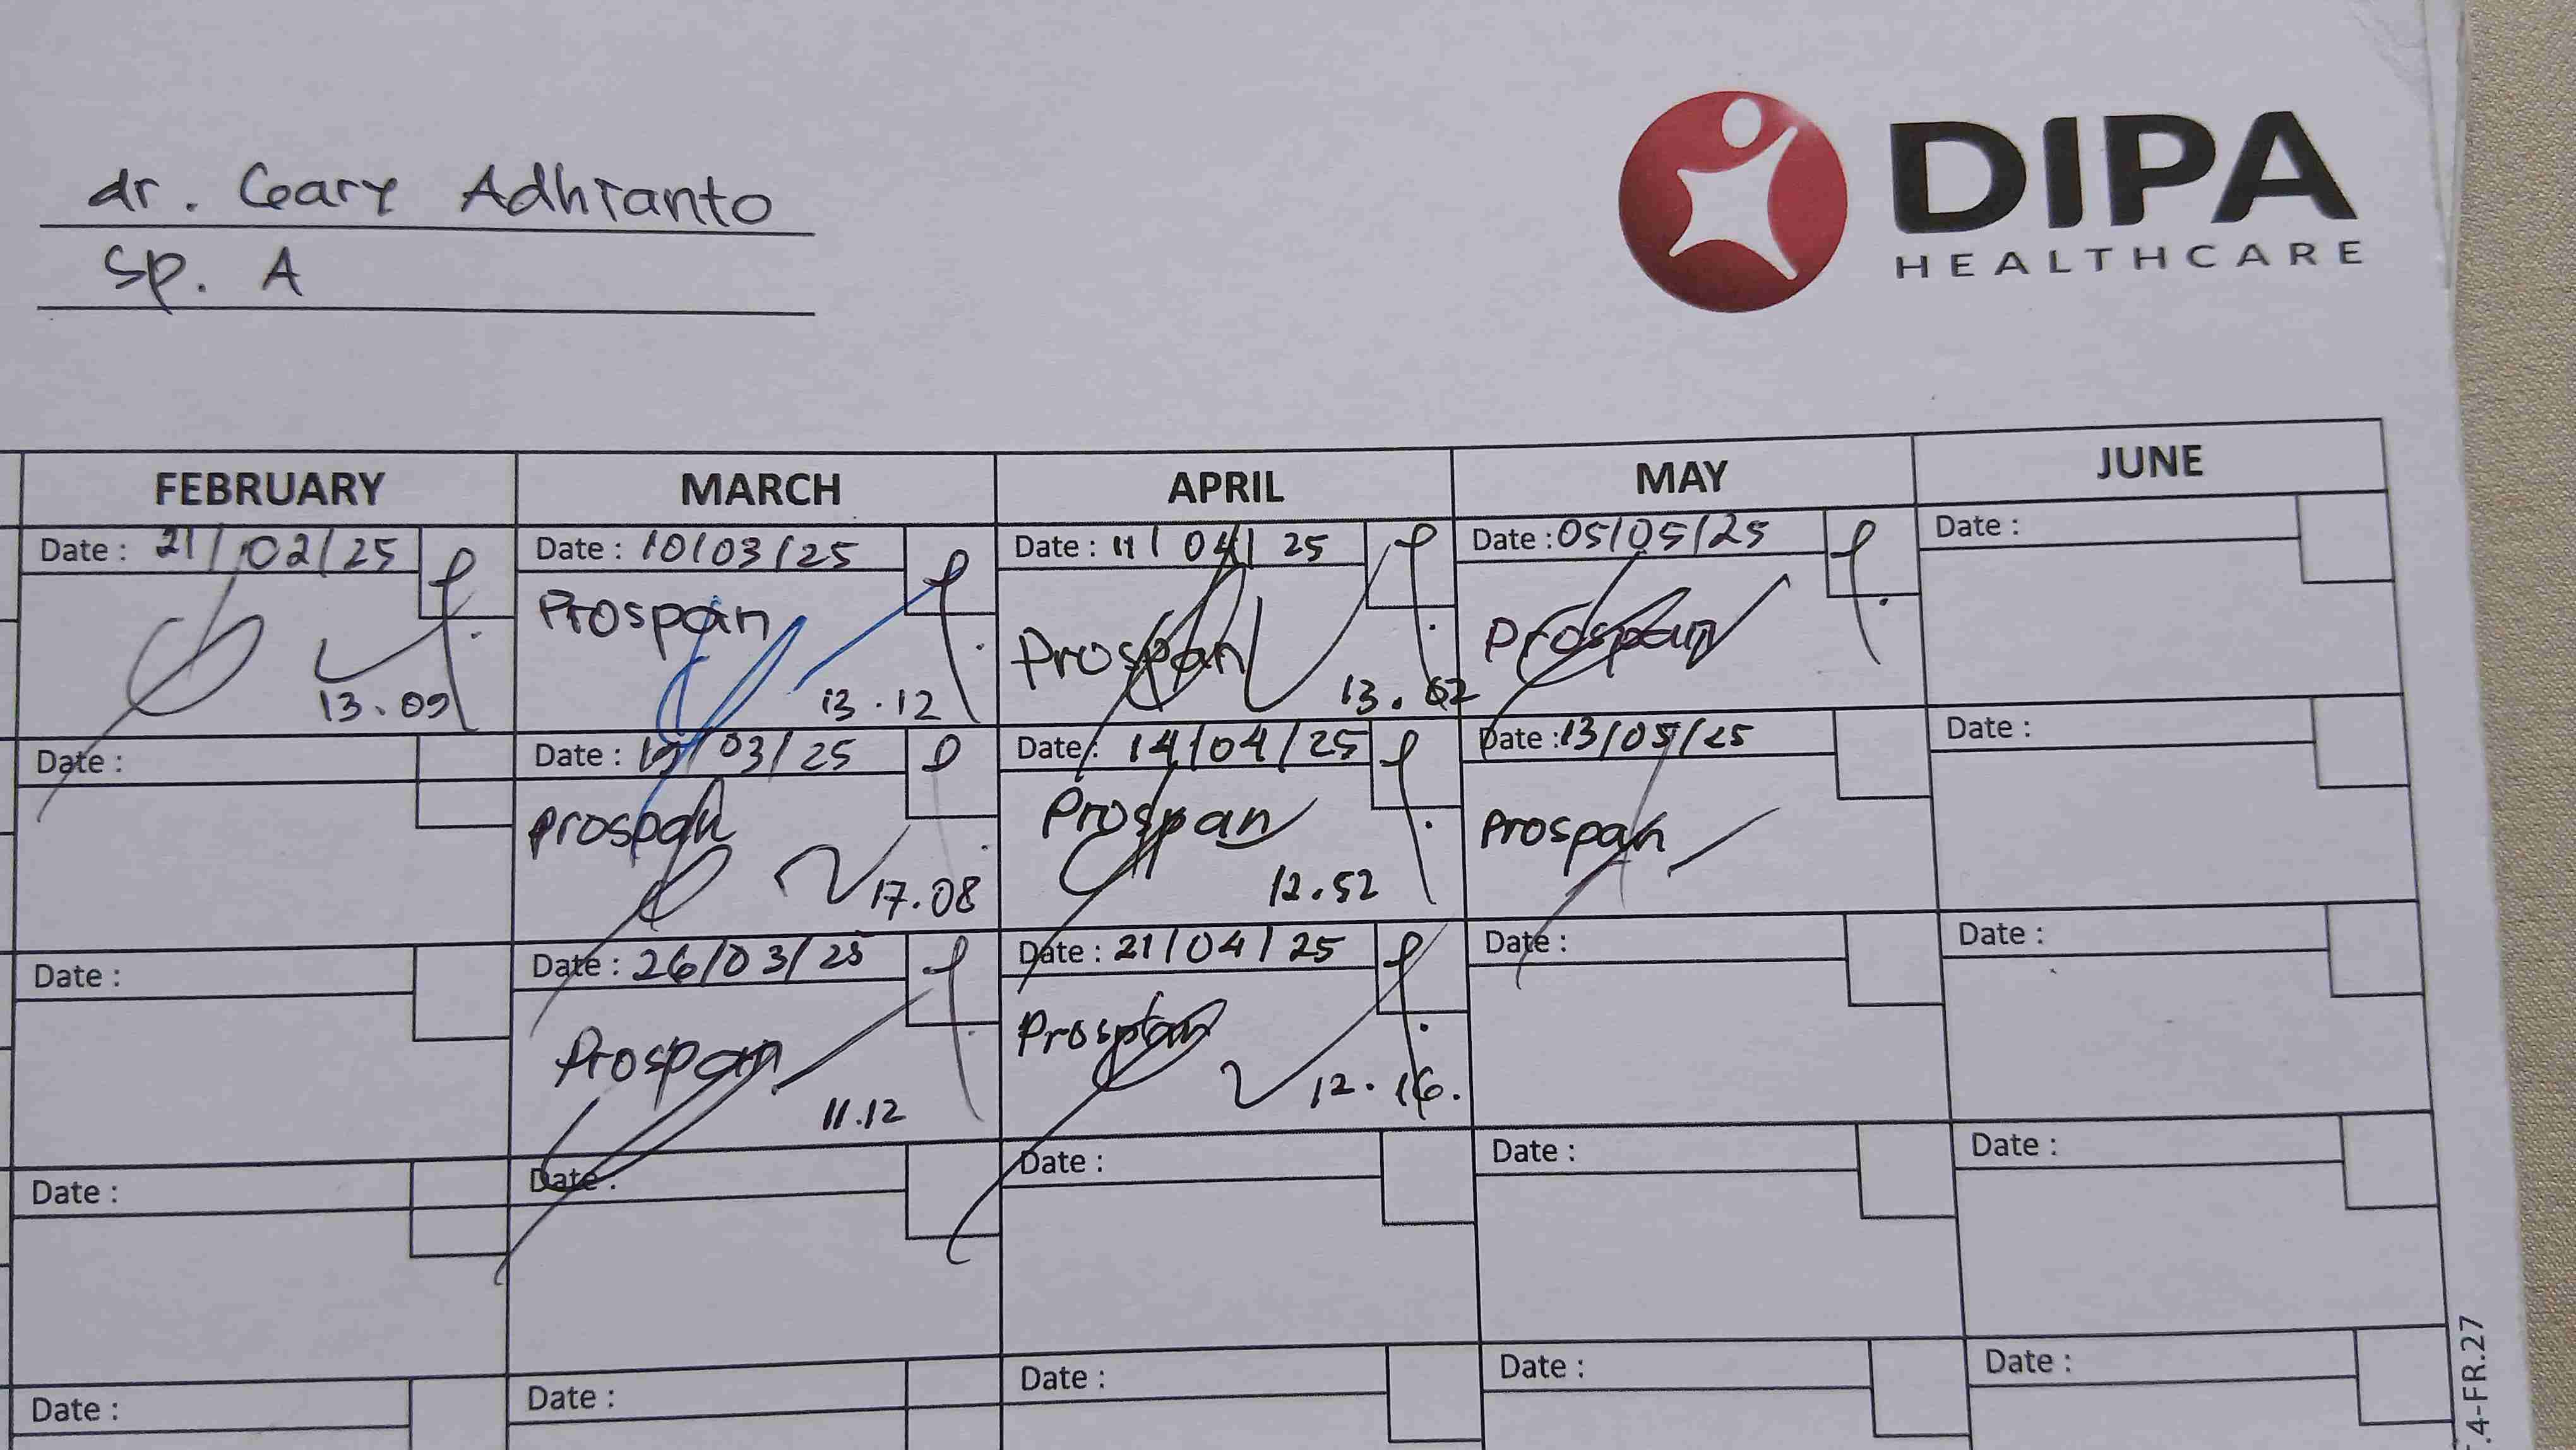 dr. Geary Adhianto
Sp. A
DIPA
HEALTHCARE
FEBRUARY MARCH APRIL MAY JUNE
Date : 21/02/25 Date : 10/03/25 Date : 11/04/25 Date : 05/05/25 Date :
Prospan Prospan Prospan
13.09 13.12 13.02
Date : Date : 19/03/25 Date : 14/04/25 Date : 13/05/25 Date :
Prospan Prospan Prospan
17.08 12.52
Date : Date : 26/03/25 Date : 21/04/25 Date : Date :
Prospan Prospan
11.12 12.16.
Date : Date : Date : Date : Date :
Date : Date : Date : Date : Date :
.4-FR.27